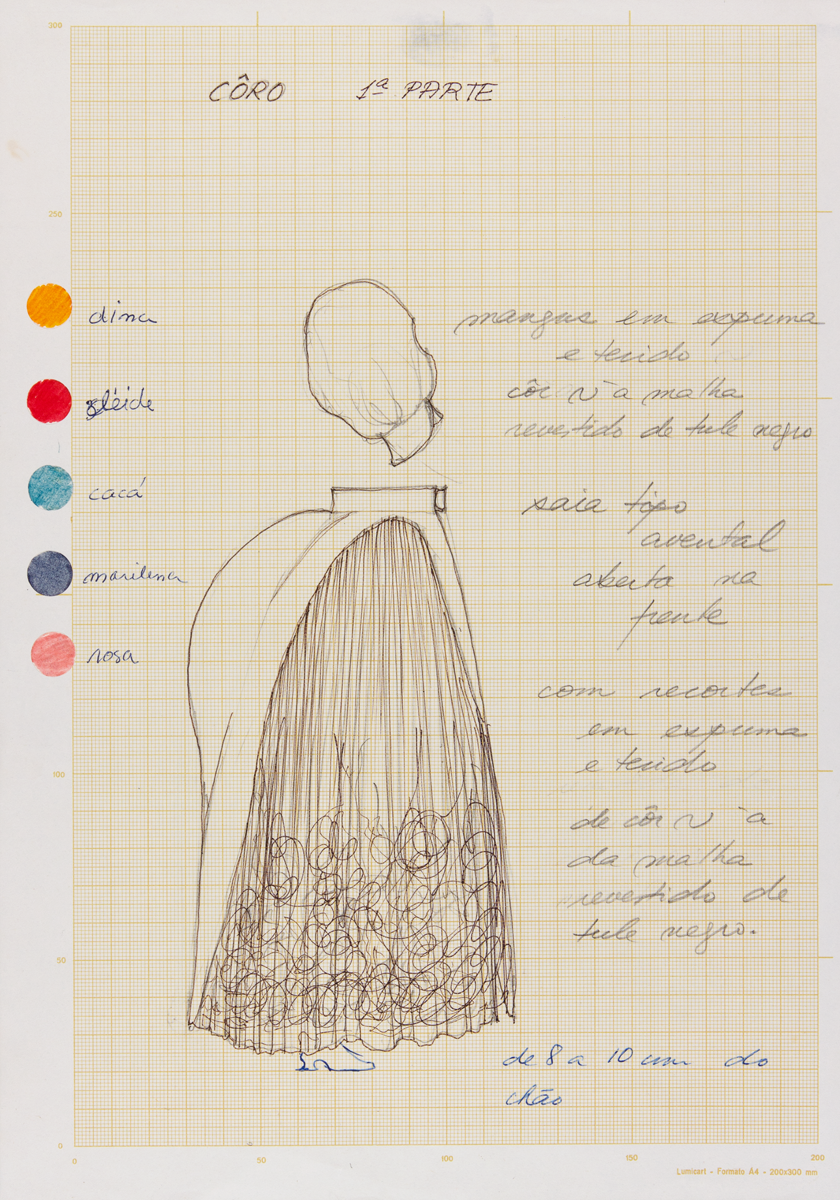 CÔRO 1ª PARTE
300
250
100
50
0
0
50
100
150
200
dina
gléide
cacá
marilena
rosa
mangas em expuma
e tecido
côr à malha
revestido de tule negro
saia tipo
avental
aberta na
frente
com recortes
em expuma
e tecido
de côr à
da malha
revestido de
tule negro.
de 8 a 10 cm do
chão
Lumicart - Formato A4 - 200x300 mm